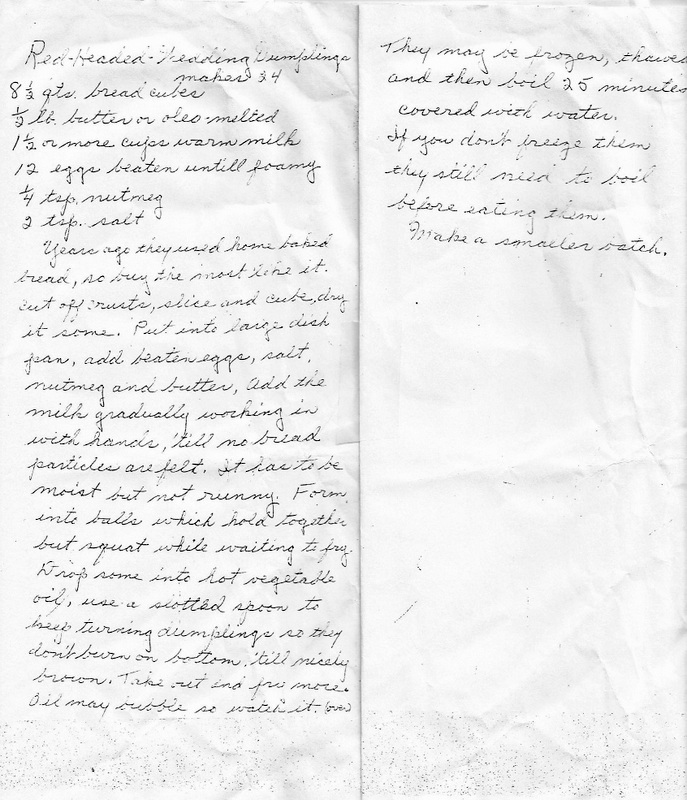 Red-Headed-Wedding Dumplings
makes 34
8 1/2 qts. bread cubes
1/2 lb. butter or oleo-melted
1 1/2 or more cups warm milk
12 eggs beaten untill foamy
1/4 tsp. nutmeg
2 tsp. salt
Years ago they used home baked
bread, so buy the most like it.
cut off crusts, slice and cube, dry
it some. Put into large dish
pan, add beaten eggs, salt,
nutmeg and butter, Add the
milk gradually working in
with hands, 'till no bread
particles are felt. It has to be
moist but not runny. Form
into balls which hold together
but squat while waiting to fry.
Drop some into hot vegetable
oil, use a slotted spoon to
keep turning dumplings so they
don't burn on bottom, 'till nicely
brown. Take out and fry more.
Oil may bubble so watch it. (over)
They may be frozen, thawed
and then boil 25 minutes
covered with water.
If you don't freeze them
they still need to boil
before eating them.
Make a smaller batch.